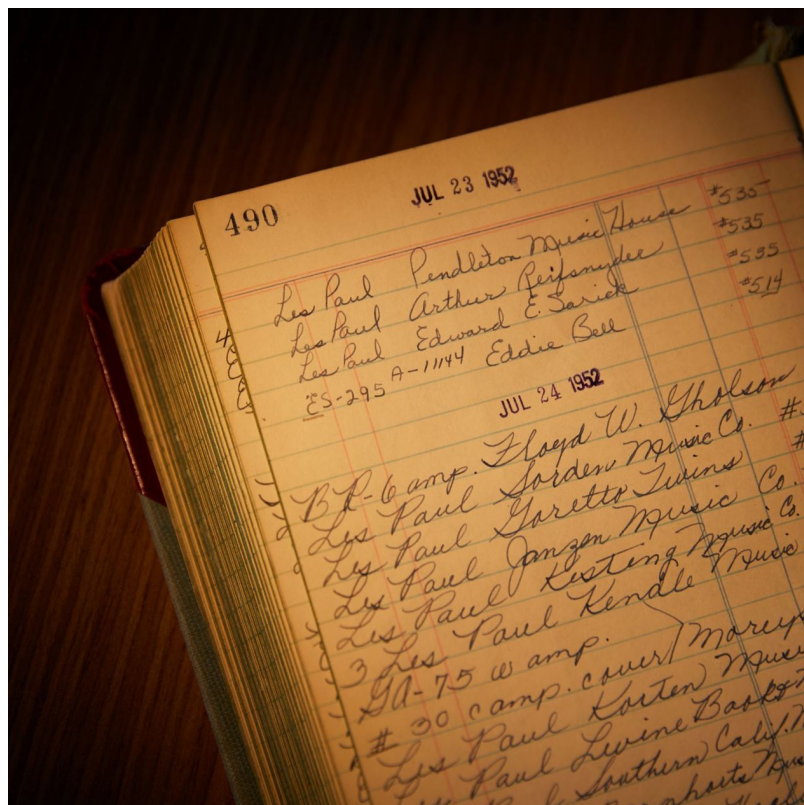 JUL 23 1952
490
Les Paul Pendleton Music House #535
Les Paul Arthur Reifsnyder #535
Les Paul Edward E. Sarick #535
ES-295 A-11144 Eddie Bell #514
JUL 24 1952
BR-6 amp. Floyd W. Gholson #
Les Paul Sorden Music Co. #
Les Paul Goretto Twins
Les Paul Janzen Music Co.
Les Paul Kesting Music Co.
3 Les Paul Kendle Music
GA-75 w amp.
# 30 c amp. cover
Les Paul Korten Music
Les Paul Levine Book
Les Paul Southern Calif. M